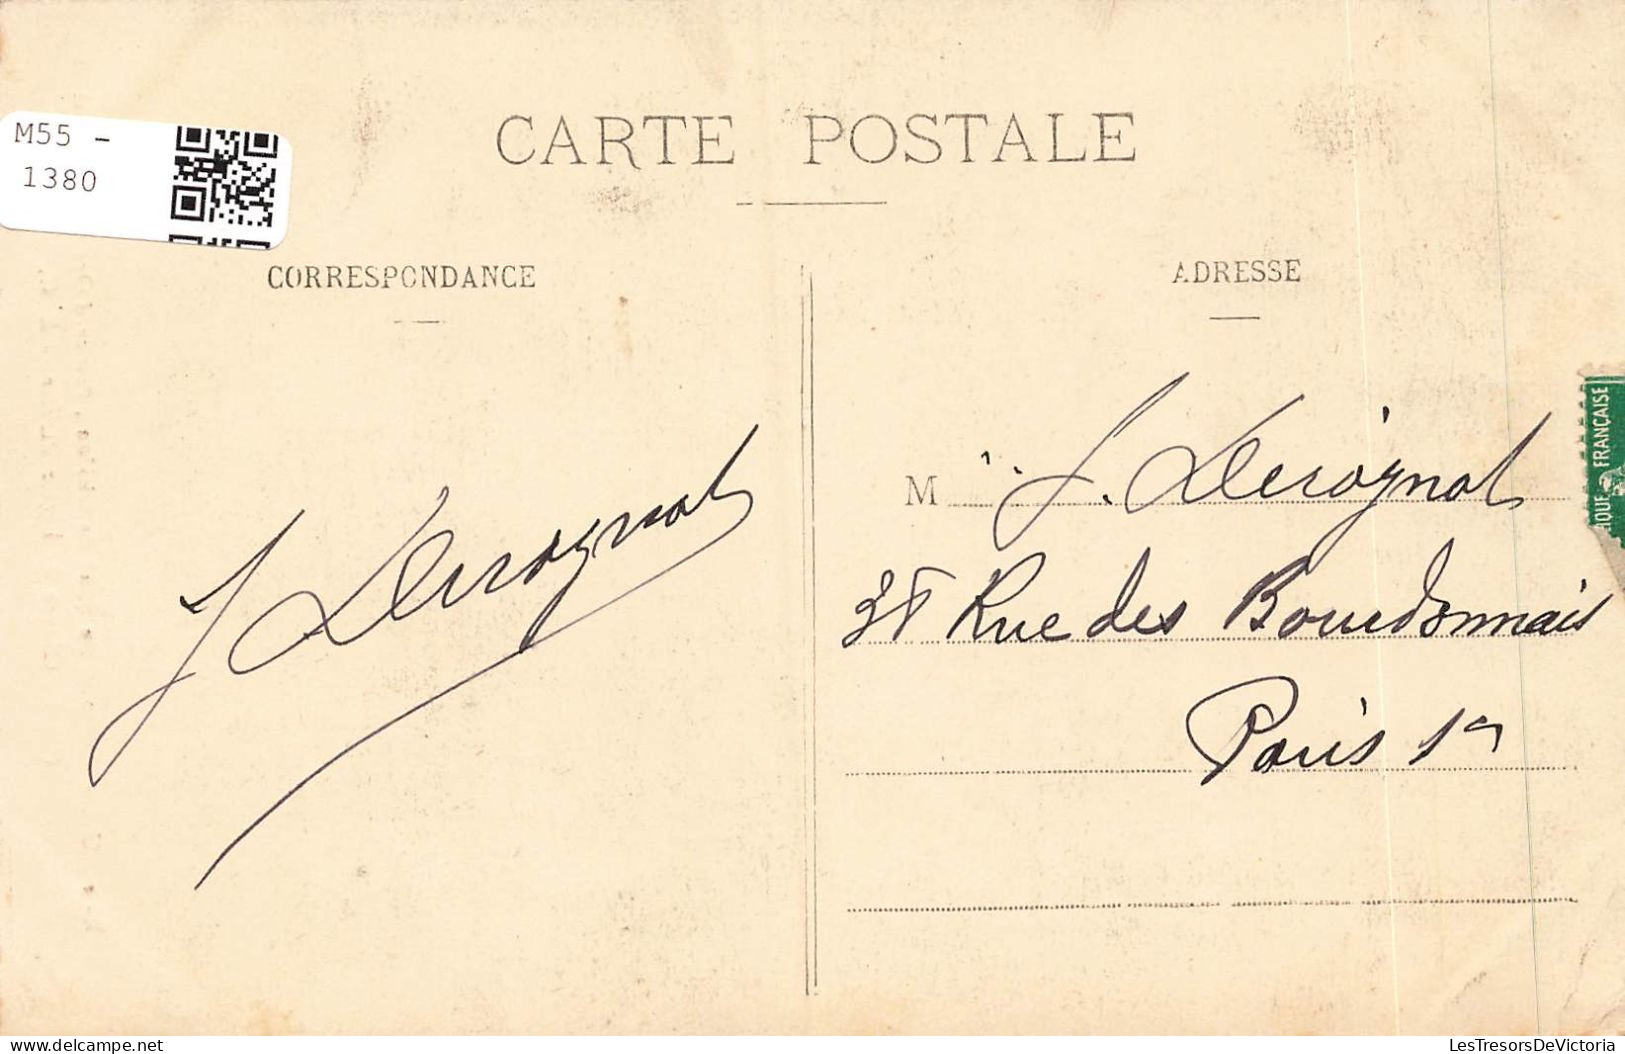 M55 -
1380
CARTE POSTALE
CORRESPONDANCE
ADRESSE
J. Derognat
M J. Derognat
Rue des Bourdonnais
Paris 1er
IQUE FRANÇAISE
delcampe.net
LesTresorsDeVictoria